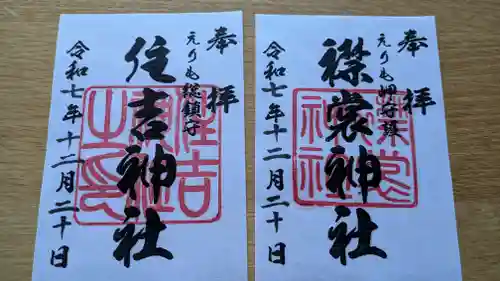 奉拝
えりも総鎮守
住吉神社
令和七年十二月二十日
奉拝
えりも岬守護
襟裳神社
令和七年十二月二十日